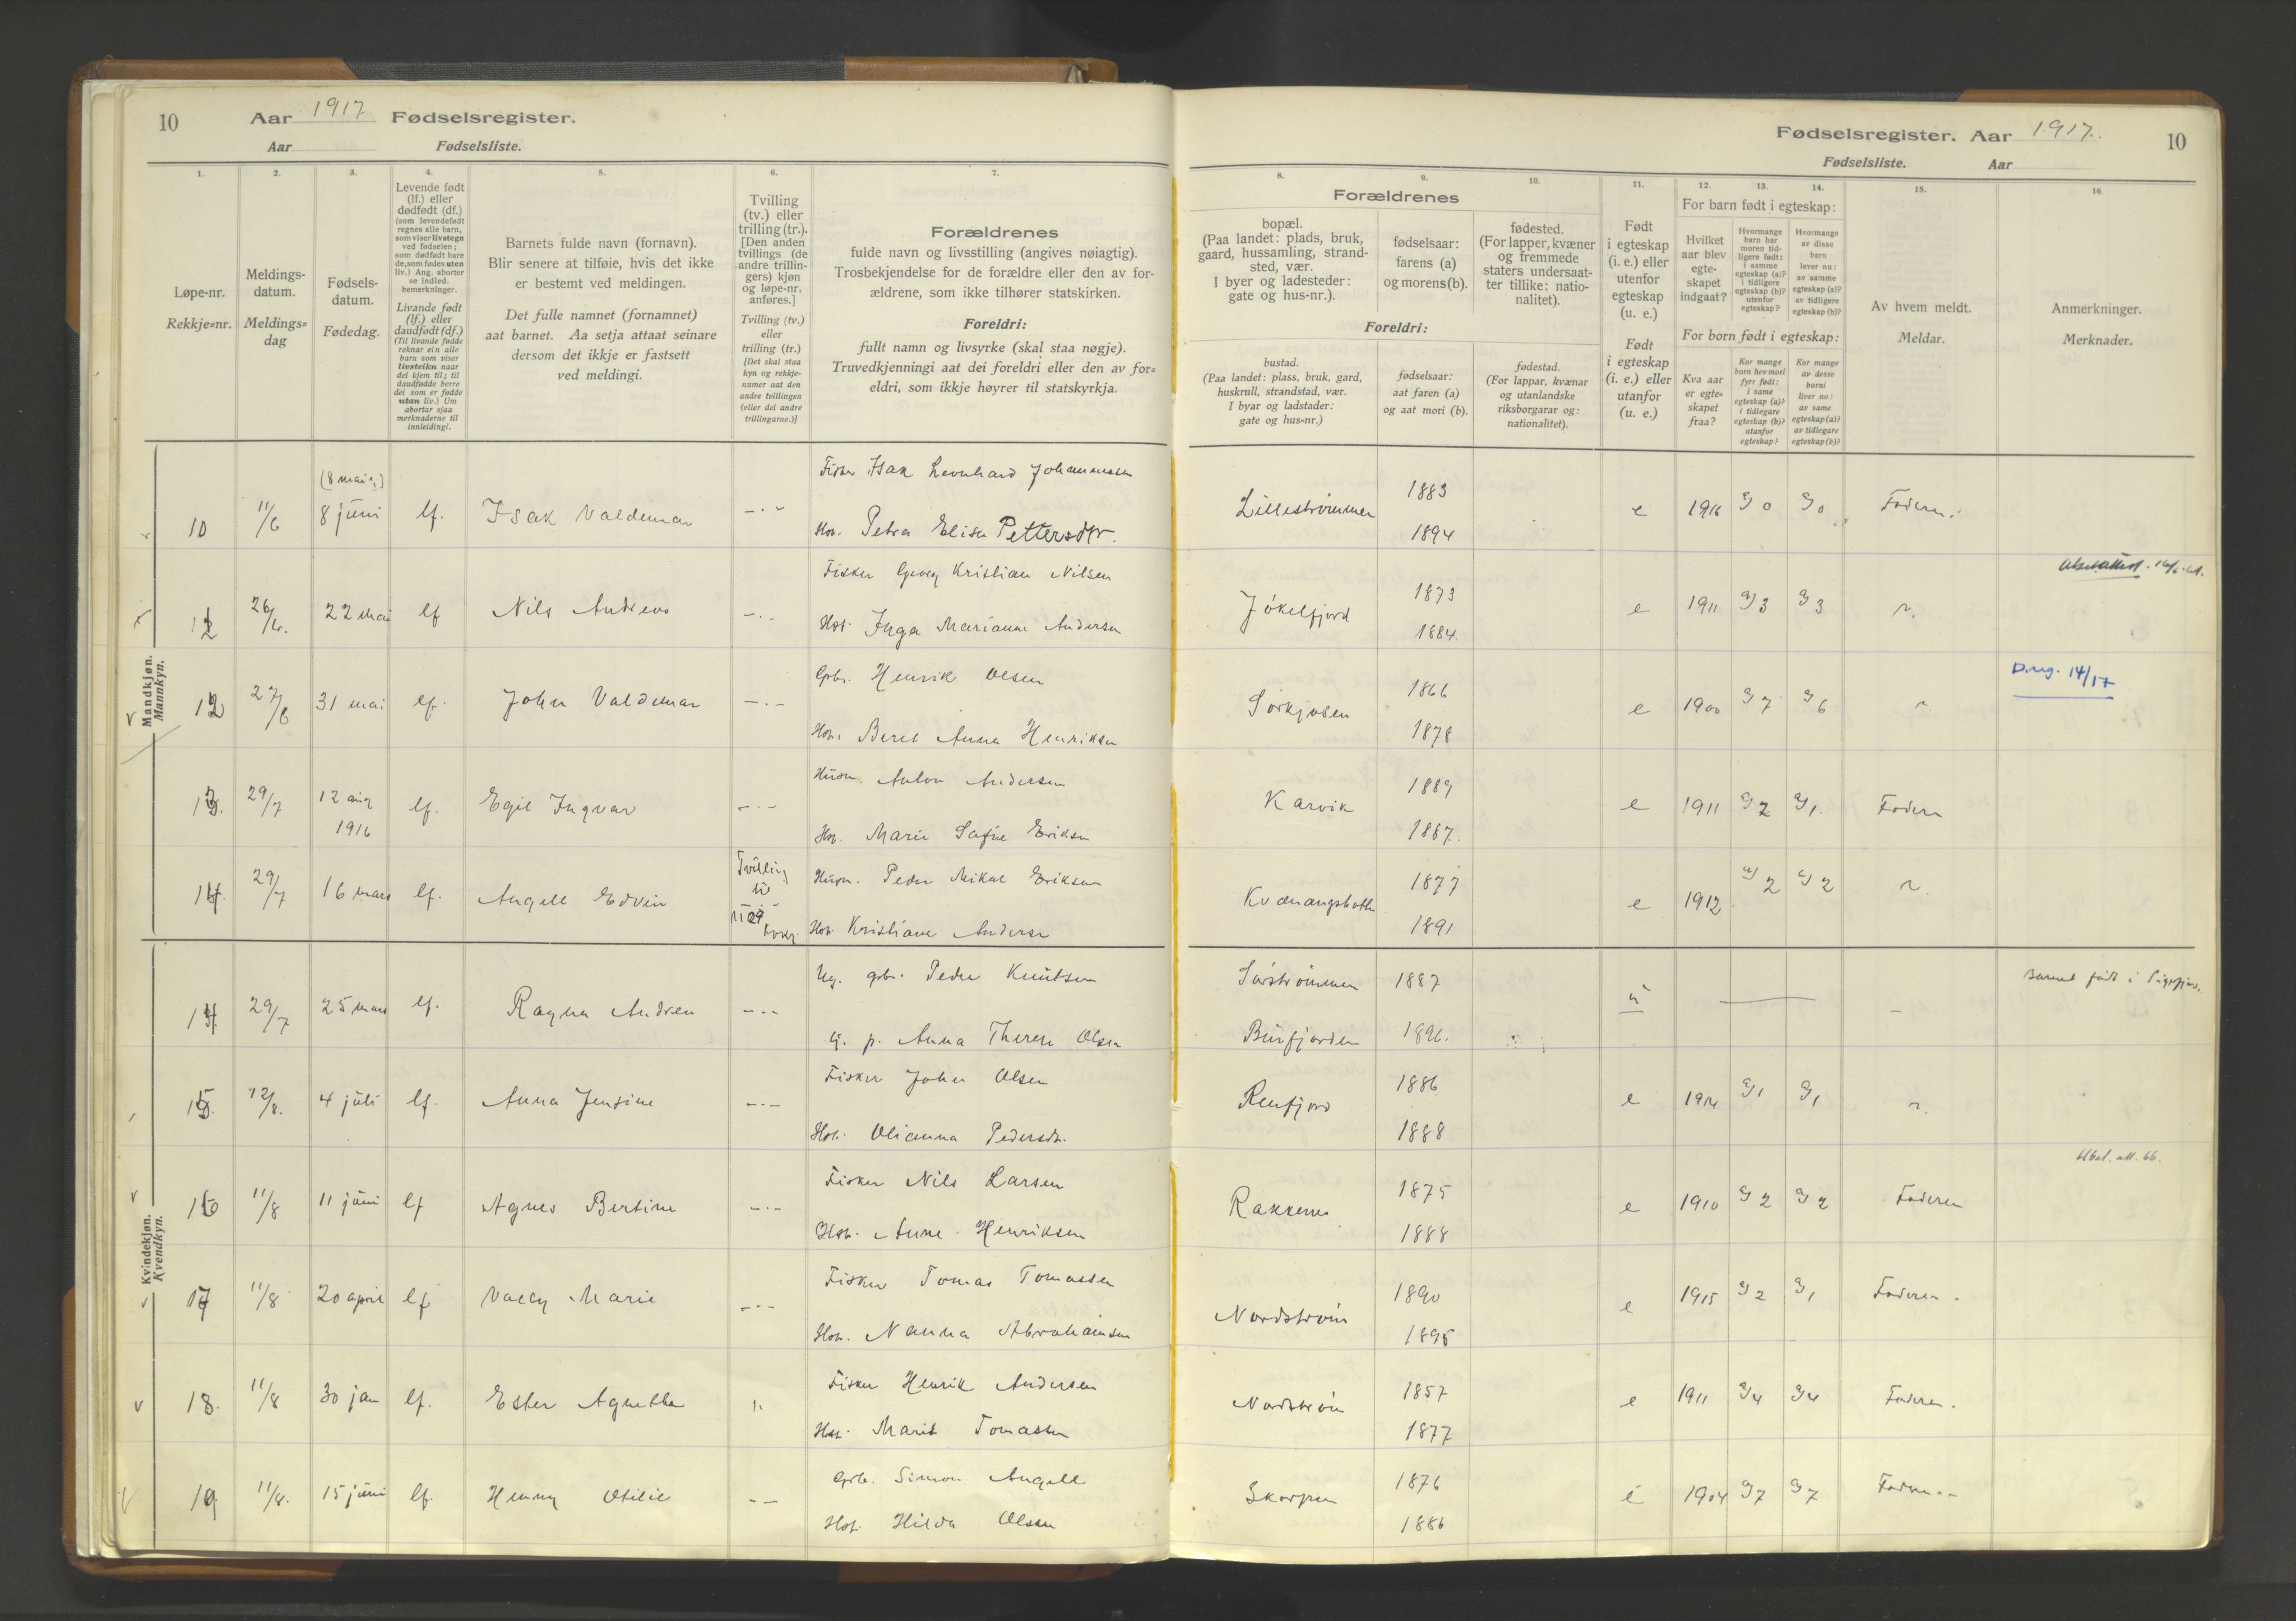 10
Aar 1917 Fødselsregister.
Aar Fødselsliste.
Fødselsregister. Aar 1917.
10
Fødselsliste. Aar
1. 2. 3. 4. 5. 6. 7.
8. 9. 10. 11. 12. 13. 14. 15. 16.
Løpe-nr.
Rekkje=nr.
Meldings-
datum.
Meldings=
dag
Fødsels-
datum.
Fødedag.
Levende født
(lf.) eller
dødfødt (df.)
(som levendefødt
regnes alle barn,
som viser livstegn
ved fødselen;
som dødfødt bare
de, som fødes uten
liv.) Ang. aborter
se indled.
bemerkninger.
Livande født
(lf.) eller
daudfødt (df.)
(Til livande fødde
reknar ein alle
barn som viser
livsteikn naar
dei kjem til; til
daudfødde berre
dei som er fødde
utan liv.) Um
abortar sjaa
merknaderne til
innleidingi.
Barnets fulde navn (fornavn).
Blir senere at tilføie, hvis det ikke
er bestemt ved meldingen.
Det fulle namnet (fornamnet)
aat barnet. Aa setja attaat seinare
dersom det ikkje er fastsett
ved meldingi.
Tvilling
(tv.) eller
trilling (tr.).
[Den anden
tvillings (de
andre trillin-
gers) kjøn
og løpe-nr.
anføres.]
Tvilling (tv.)
eller
trilling (tr.)
[Det skal staa
kyn og rekkje-
numer aat den
andre tvillingen
(eller dei andre
trillingarne.)]
Forældrenes
fulde navn og livsstilling (angives nøiagtig).
Trosbekjendelse for de forældre eller den av for-
ældrene, som ikke tilhører statskirken.
Foreldri:
fullt namn og livsyrke (skal staa nøgje).
Truvedkjenningi aat dei foreldri eller den av for=
eldri, som ikkje høyrer til statskyrkja.
Forældrenes
bopæl.
(Paa landet: plads, bruk,
gaard, hussamling, strand-
sted, vær.
I byer og ladesteder:
gate og hus-nr.).
fødselsaar:
farens (a)
og morens (b).
fødested.
(For lapper, kvæner
og fremmede
staters undersaat-
ter tillike: natio-
nalitet).
Foreldri:
bustad.
(Paa landet: plass, bruk, gard,
huskrull, strandstad, vær.
I byar og ladstader:
gate og hus=nr.)
fødselsaar:
aat faren (a)
og aat mori (b).
fødestad.
(For lappar, kvænar
og utanlandske
riksborgarar og:
nationalitet).
Født
i egteskap
(i. e.) eller
utenfor
egteskap
(u. e.)
Født
i egteskap
(i. e.) eller
utanfor
(u. e.)
For barn født i egteskap:
Hvilket
aar blev
egte-
skapet
indgaat?
Hvormange
barn har
moren tid-
ligere født:
i samme
egteskap (a)?
i tidligere
egteskap (b)?
utenfor
egteskap?
Hvormange
av disse
barn
lever nu:
av samme
egteskap (a)?
av tidligere
egteskap (b)?
For born født i egteskap:
Kva aar
er egte=
skapet
fraa?
Kor mange
born hev mori
fyrr født:
i same
egteskap (a)?
i tidlegare
egteskap (b)?
utanfor
egteskap?
Kor mange
av desse
borni
liver no:
av same
egteskap (a)?
av tidlegare
egteskap (b)?
Av hvem meldt.
Meldar.
Anmerkninger.
Merknader.
Mandkjøn.
Mannkyn.
(8 mai?)
10 11/6 8 juni lf. Isak Valdemar
Fisker Isak Leonhard Johannessen
Hst. Petra Elisa Pettersdtr.
Lillestrømmen 1883 1894 e 1916 a) 0 a) 0 Faderen.
26/6. 22 mai lf Nils Andreas
Fisker Georg Kristian Nilsen
Hst. Inga Marianne Andersen
Jøkelfjord 1873 1884. e 1911 a) 3 a) 3
12 27/6 31 mai lf. John Valdemar
Gbr. Henrik Olsen
Hst. Beret Anna Henriksen
Sørkjosen 1866 1878 e 1900 a) 7 a) 6
D.reg. 14/17
13. 29/7 12 aug 1916 lf. Egil Ingvar
Husm. Anton Andersen
Hst. Marie Sofie Eriksen
Karvik 1889 1887. e 1911 a) 2 a) 1. Faderen
14. 29/7 16 mars lf. Angell Edvin
Tvilling til
Husm. Peder Mikal Eriksen
Hst. Kristiane Andersen
Kvænangsbotn 1877 1891 e 1912 a) 2 a) 2
Kvindekjøn.
Kvendkyn.
14. 29/7 25 mars lf. Ragna Andrea
Ug. gbr. Peder Knutsen
U. p. Anna Therese Olsen
Sørstrømmen 1887
Burfjorden 1896. u
Barnet født i
15. 12/8. 4 juli lf. Anna Jensine
Fisker John Olsen
Hst. Olianna Pedersdtr.
Renfjord 1886 1888 e 1914 a) 1 a) 1
16 11/8 11 juni lf Agnes Bertine
Fisker Nils Larsen
Hst. Anne Henriksen
Rakkenes 1875 1888 e 1910 a) 2 a) 2 Faderen
att. 66.
17 11/8 20 april lf Vally Marie
Fisker Tomas Tomassen
Hst. Nanna Abrahamsen
Nordstrøm 1890 1895 e 1915 a) 2 a) 1 Faderen.
18. 11/8 30 jan lf. Ester Agnethe
Fisker Henrik Andersen
Hst. Marit Tomassen
Nordstrøm 1857 1877 e 1911 a) 4 a) 4 Faderen.
19 11/8. 15 juni lf. Henny Otilie
Gbr. Simon Angell
Hst. Hilda Olsen
Skorpen 1876 1886 e 1904 a) 7 a) 7 Faderen